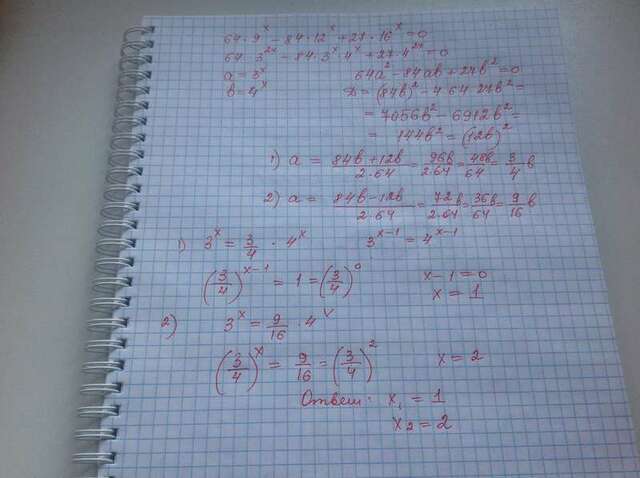 64·9^x − 84·12^x + 27·16^x = 0
64·3^2x − 84·3^x·4^x + 27·4^2x = 0
a = 3^x 64a² − 84ab + 27b² = 0
b = 4^x D = (84b)² − 4·64·27b² =
= 7056b² − 6912b² =
= 144b² = (12b)²
1) a = (84b + 12b)/(2·64) = 96b/(2·64) = 48b/64 = 3/4 b
2) a = (84b − 12b)/(2·64) = 72b/(2·64) = 36b/64 = 9/16 b
1) 3^x = 3/4 · 4^x 3^x−1 = 4^x−1
(3/4)^x−1 = 1 = (3/4)^0 x − 1 = 0
x = 1
2) 3^x = 9/16 · 4^x
(3/4)^x = 9/16 = (3/4)² x = 2
Ответ: x₁ = 1
x₂ = 2